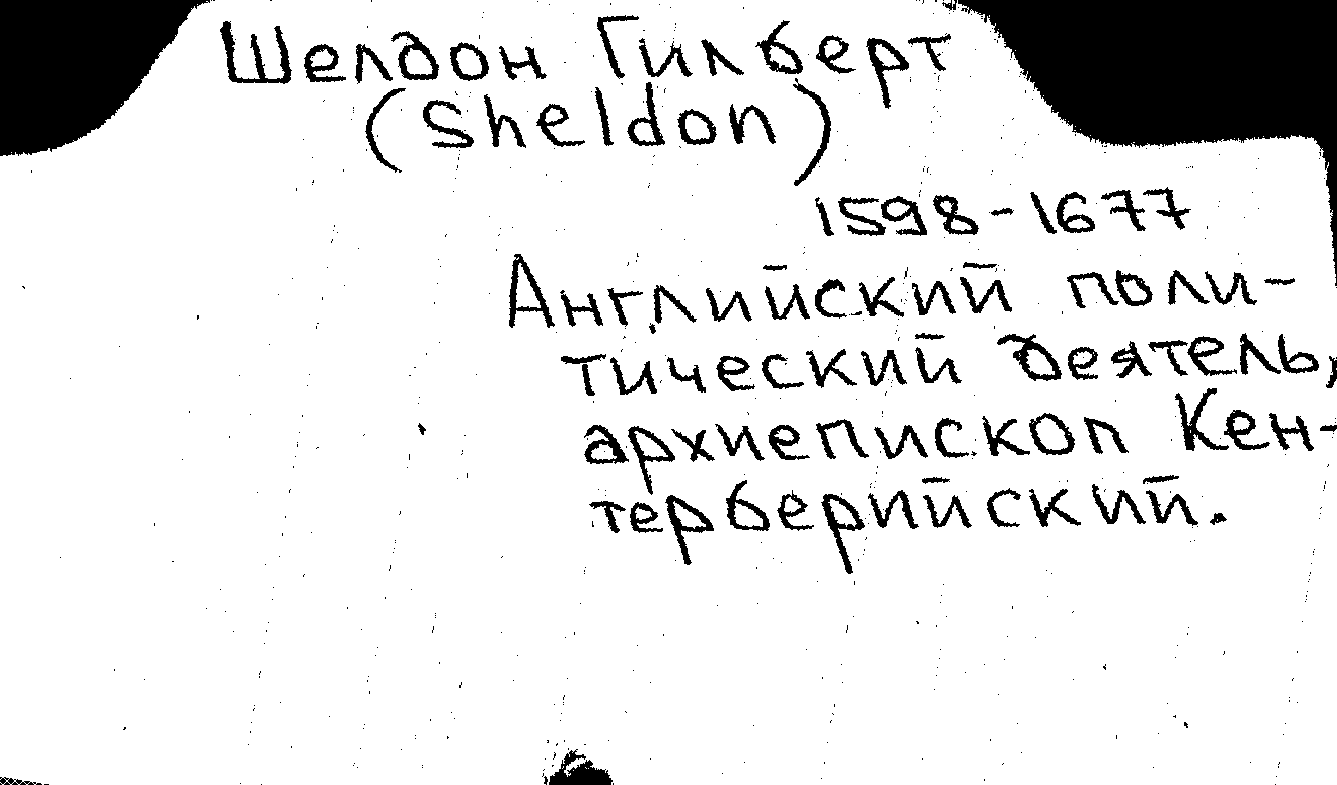 Шелдон Гилберт
(Sheldon)
1598-1677
Английский поли-
тический деятель,
архиепископ Кен-
терберийский.